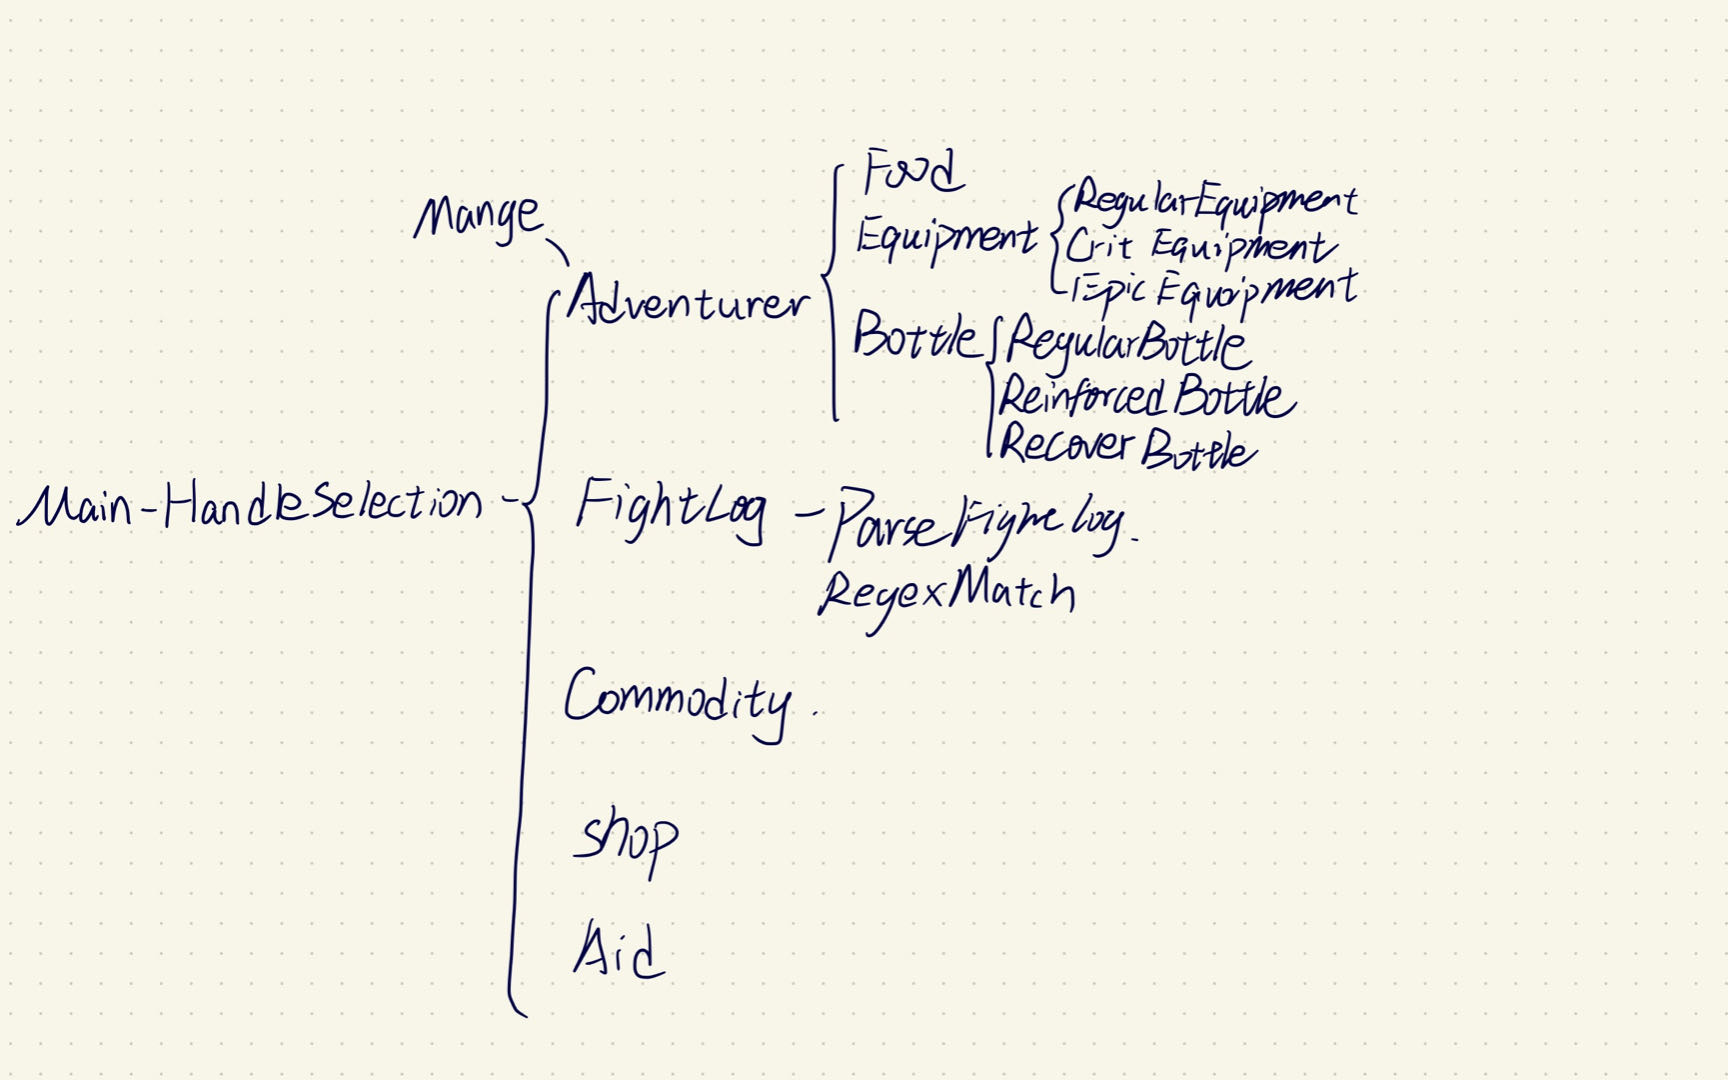 Mange
Adventurer
Food
Equipment
RegularEquipment
Crit Equipment
Epic Equipment
Bottle
RegularBottle
Reinforced Bottle
Recover Bottle
Main-HandleSelection -
FightLog - ParseFightLog.
RegexMatch
Commodity.
shop
Aid